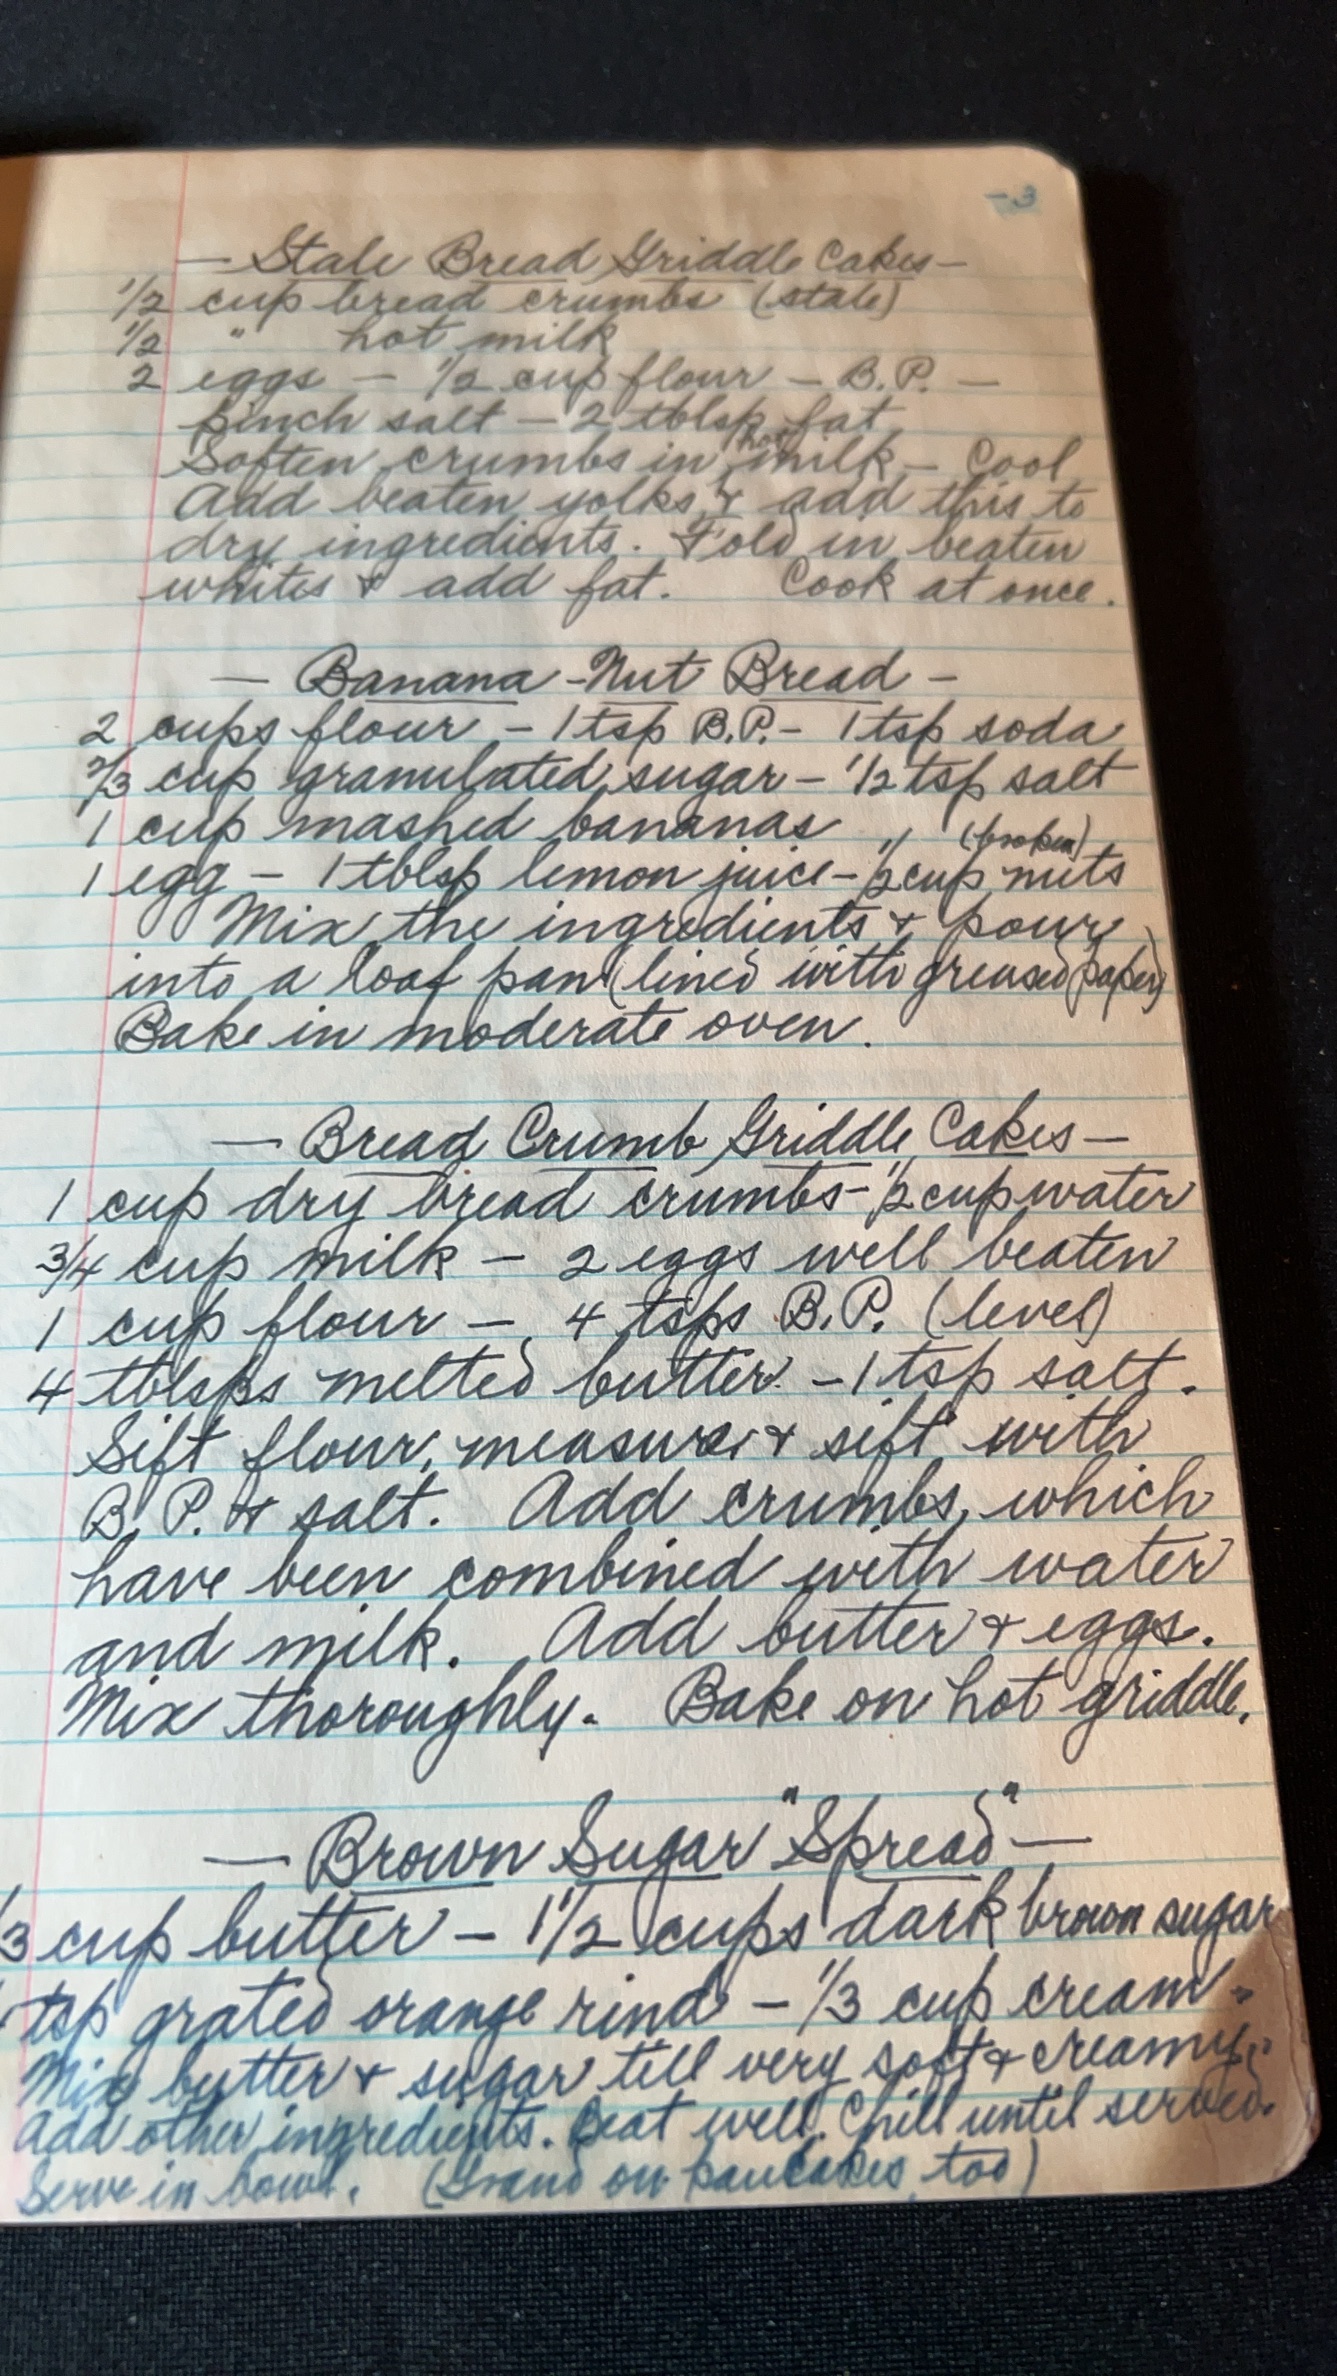 -3
— Stale Bread Griddle Cakes —
1/2 cup bread crumbs (stale)
1/2 " hot milk
2 eggs — 1/2 cup flour — B.P. —
pinch salt — 2 tblsp fat
Soften crumbs in hot milk — Cool
Add beaten yolks & add this to
dry ingredients. Fold in beaten
whites & add fat. Cook at once.
— Banana-Nut Bread —
2 cups flour — 1 tsp B.P. — 1 tsp soda
2/3 cup granulated sugar — 1/2 tsp salt
1 cup mashed bananas
1 egg — 1 tblsp lemon juice — 1/2 cup (broken) nuts
Mix the ingredients & pour
into a loaf pan (lined with greased paper)
Bake in moderate oven.
— Bread Crumb Griddle Cakes —
1 cup dry bread crumbs — 1/2 cup water
3/4 cup milk — 2 eggs well beaten
1 cup flour — 4 tsps B.P. (level)
4 tblsps melted butter — 1 tsp salt.
Sift flour, measure & sift with
B.P. & salt. Add crumbs, which
have been combined with water
and milk. Add butter & eggs.
Mix thoroughly. Bake on hot griddle.
— Brown Sugar "Spread" —
1/3 cup butter — 1 1/2 cups dark brown sugar
tsp grated orange rind — 1/3 cup cream.
Mix butter & sugar till very soft & creamy.
Add other ingredients. Beat well. Chill until served.
Serve in bowl. (Grand on pancakes, too)